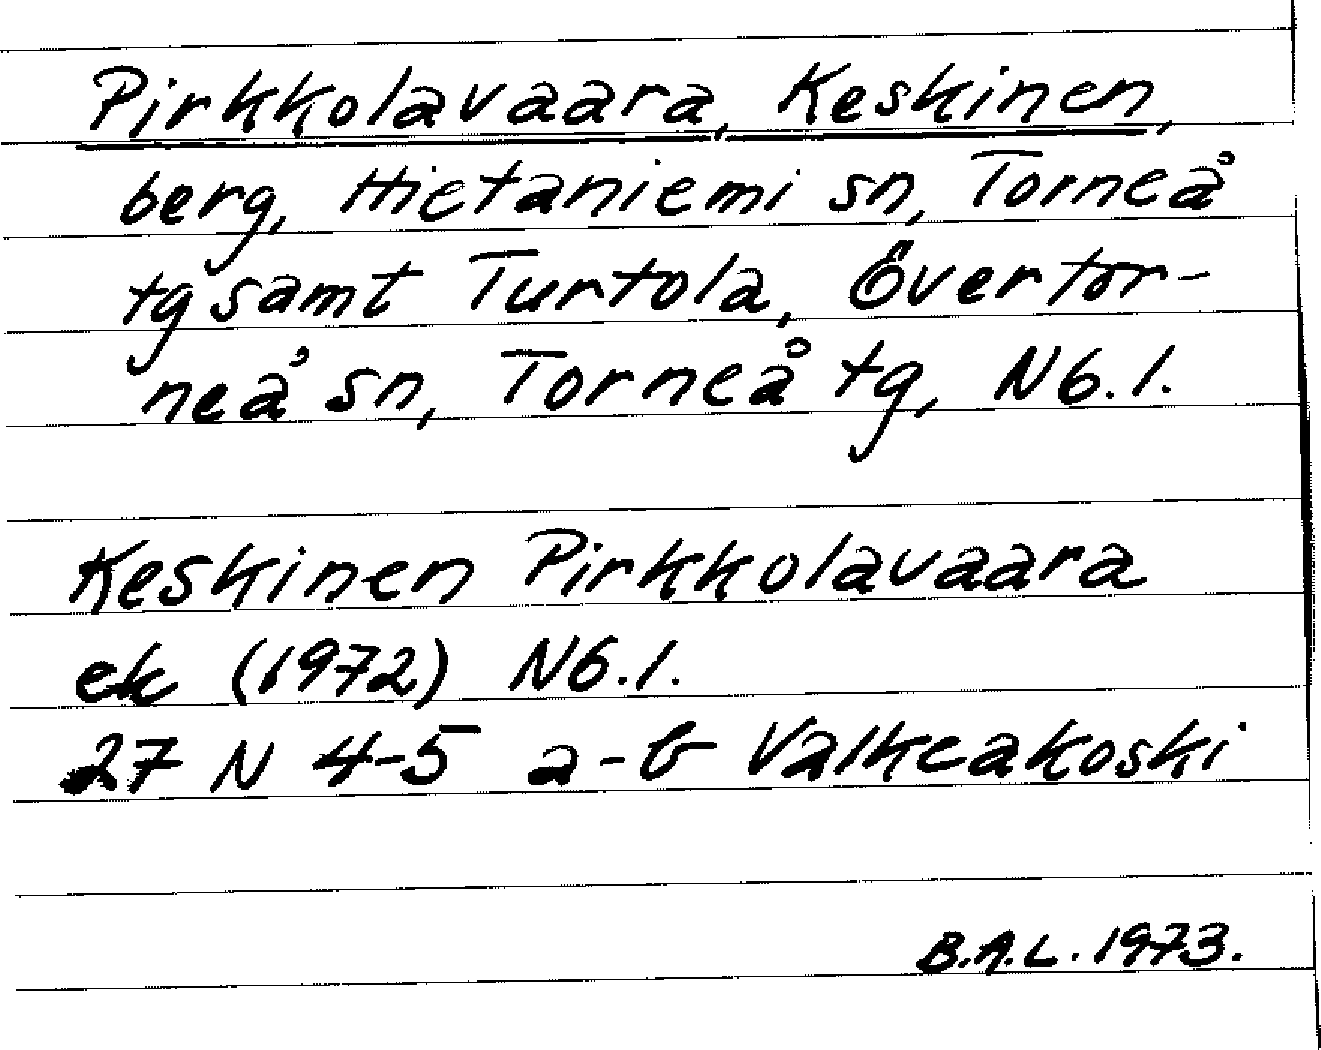 Pirkkolavaara, Keskinen,
berg, Hietaniemi sn, Torneå
tg samt Turtola, Övertor-
neå sn, Torneå tg, N6.1.
Keskinen Pirkkolavaara
ek (1972) N6.1.
27 N 4-5 a-b Valkeakoski
B.A.L. 1973.